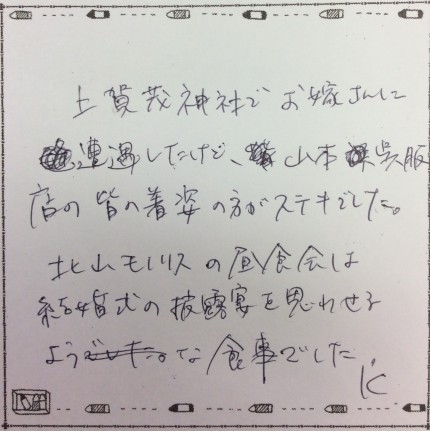 上賀茂神社でお嫁さんに
遭遇したけど、山本呉服
店の皆の着姿の方がステキでした。
北山モノリスの昼食会は
結婚式の披露宴を思わせる
ような食事でした
K